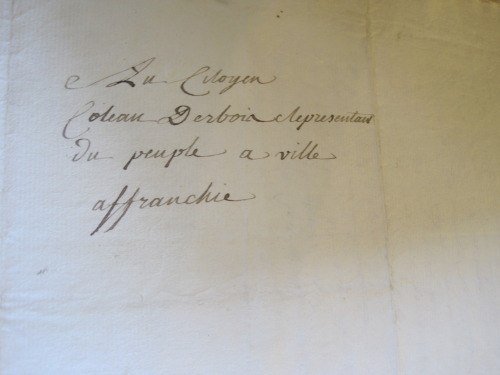 Au Citoyen
Coleau Derbois Representans
du peuple a ville
affranchie